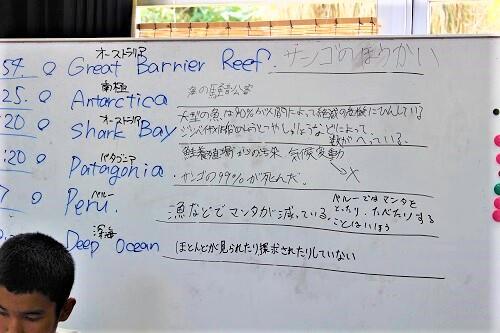 オーストラリア
54. Great Barrier Reef. サンゴのほうかい
南極
25. Antarctica 海の騒音公害
オーストラリア
:20 Shark Bay 大型の魚は90%が人間によって絶滅の危機にひんしている
ジンベイザメは などによって、
数がへっている。
パタゴニア
:20 Patagonia 鮭養殖場からの汚染 気候変動
サンゴの99%が死んだ。 ×
ペルー
7 Peru. 漁などでマンタが減っている。 ペルーではマンタを
とったり、たべたりする
ことはいほう
深海
Deep Ocean ほとんどが見られたり探求されたりしていない